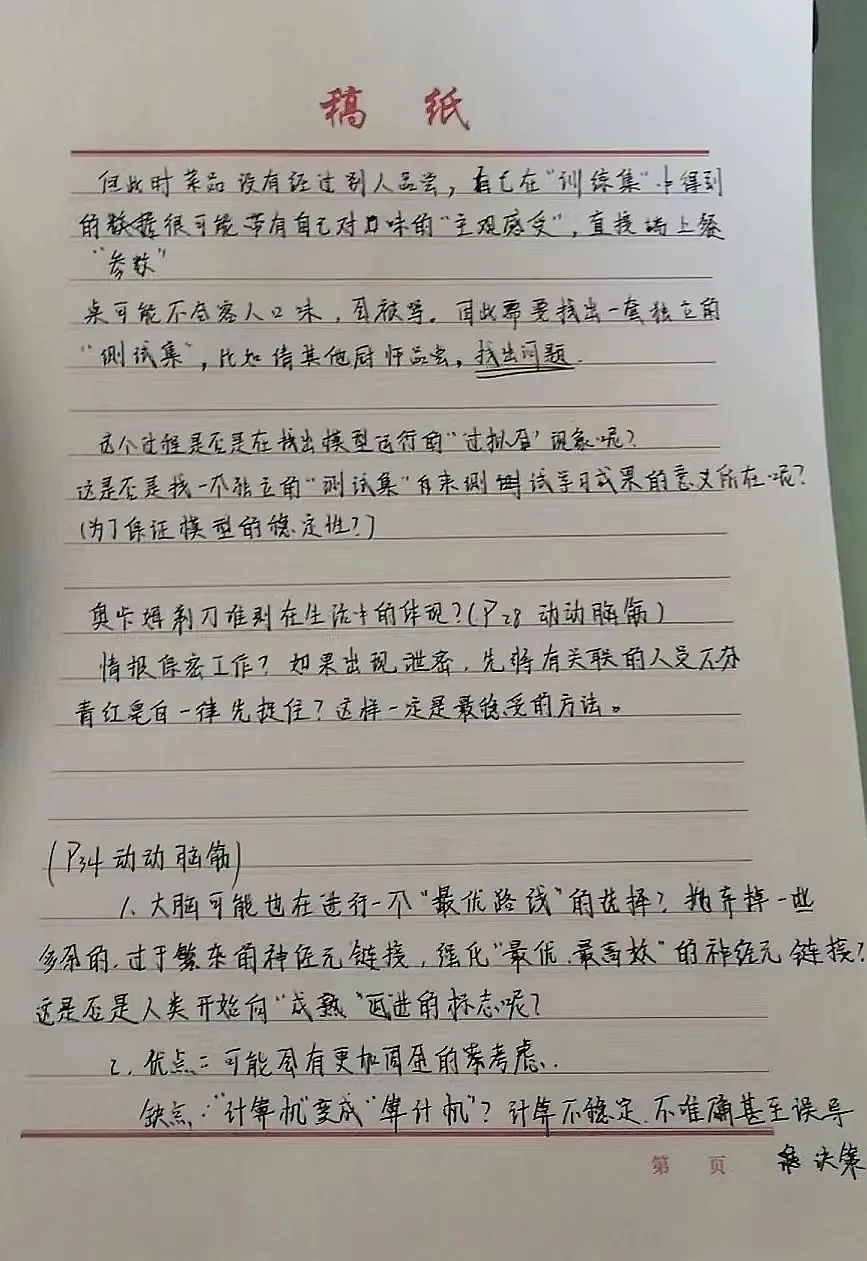 稿 纸
但此时菜品没有经过别人品尝，自己在“训练集”中得到
的数据很可能带有自己对口味的“主观感受”，直接端上餐
“参数”
桌可能不合客人口味，且被骂。因此需要找出一套独立的
“测试集”，比如请其他厨师品尝，找出问题.
这个过程是否是在找出模型运行的“过拟合”现象呢？
这是否是找一个独立的“测试集”来测试学习成果的意义所在呢？
（为了保证模型的稳定性？）
奥卡姆剃刀准则在生活中的体现？（P28 动动脑筋）
情报保密工作？如果出现泄密，先将有关联的人员不分
青红皂白一律先捉住？这样一定是最稳妥的方法。
（P34 动动脑筋）
1. 大脑可能也在进行一个“最优路线”的选择？抛弃掉一些
多余的、过于繁杂的神经元链接，强化“最优、最高效”的神经元链接？
这是否是人类开始向“成熟”迈进的标志呢？
2. 优点：可能会有更加周全的考虑.
缺点：“计算机”变成“算计机”？计算不稳定、不准确甚至误导
决策
第 页